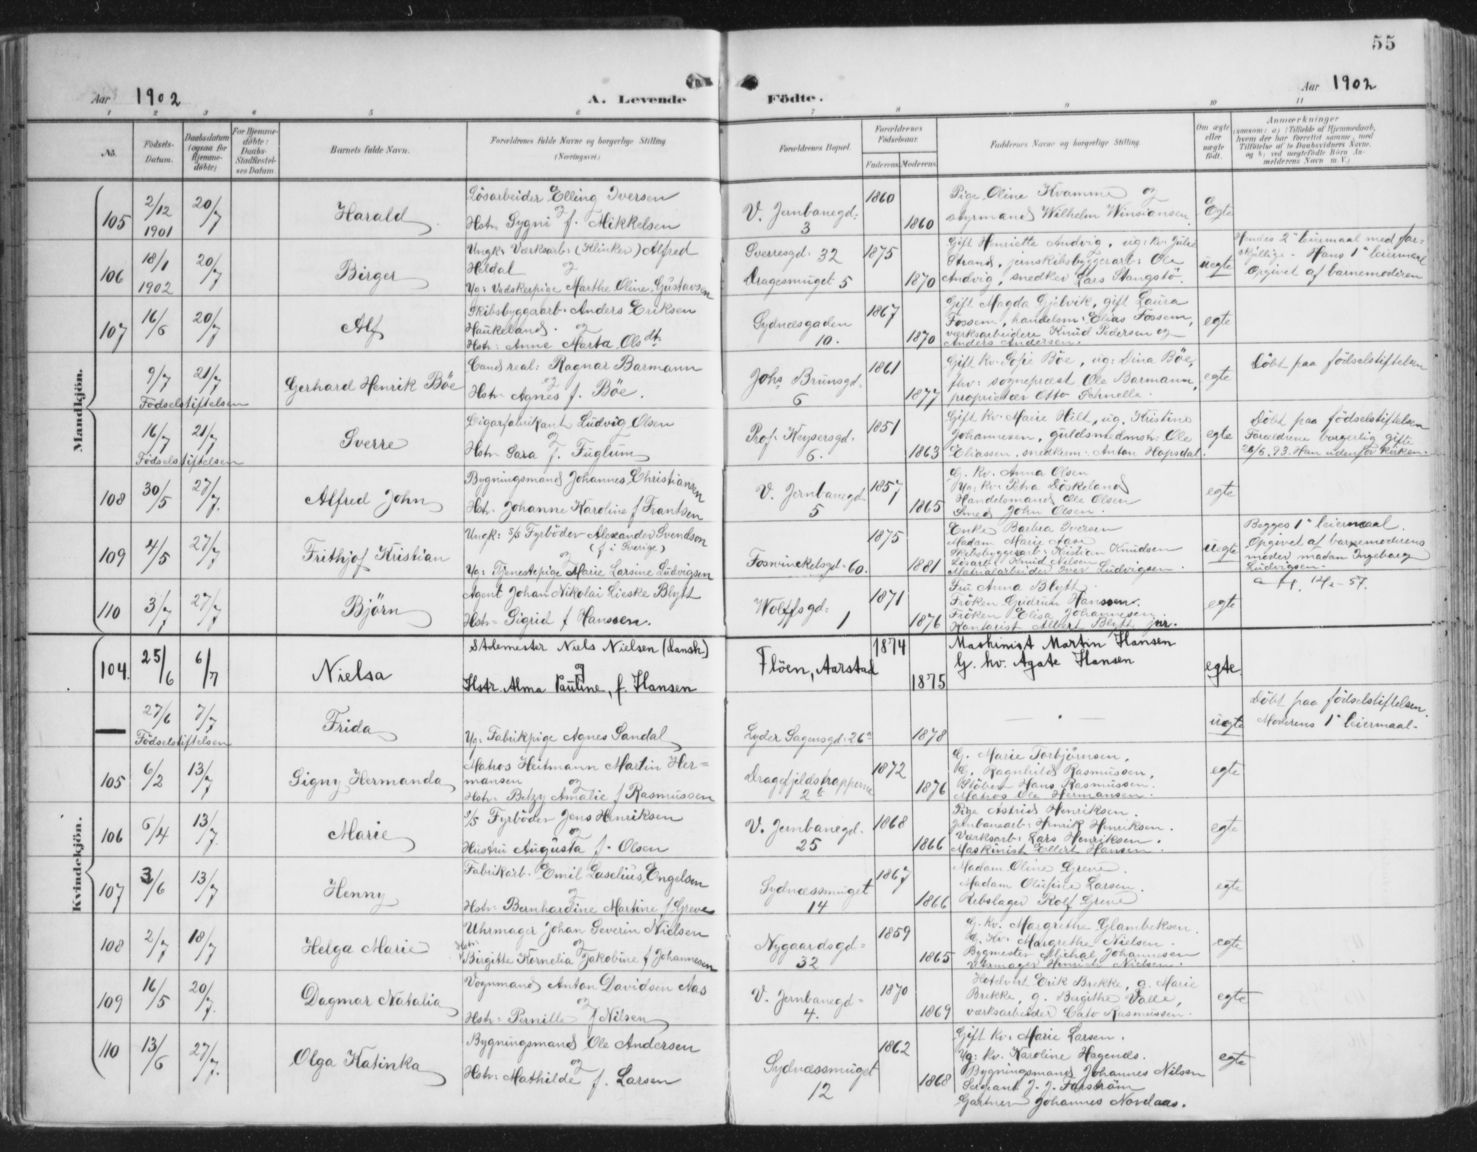 55
Aar 1902 A. Levende Födte. Aar 1902
1 2 3 4 5 6 7 8 9 10 11
No. Fødsels-Datum. Daabsdatum (ogsaa for Hjemme-döbte) For Hjemme-döbte: Daabs-Stadfæstel-ses Datum Barnets fulde Navn. Forældrenes fulde Navne og borgerlige Stilling (Næringsvei) Forældrenes Bopæl. Forældrenes Fødselsaar. Faderens Moderens Faddernes Navne og borgerlige Stilling. Om ægte eller uægte födt. Anmærkninger
Mandkjön.
105 2/12 1901 20/7 Harald
Lösarbeider Elling Iversen
og
Hstr. Gygni f. Mikkelsen
V. Jernbanegd. 3
1860 1860
Pige Oline Kvamme og
styrmand Wilhelm
Egte
106 18/1 1902 20/7 Birger
Ungk. Værksarb. (Klinker) Alfred
Heldal og
Ug. Vadskerpige Marthe Oline Gustavsen
Sverresgd. 32
Dragesmuget 5
1875 1870
Gift Henriette Andvig, ug. kv. Julie
Strand, jernskibsbyggerarb. Ole
Andvig, snedker Lars Stangstø
uegte
Hendes 2det leiermaal med for-
skjellige. Hans 1ste leiermaal
Opgivet af barnemoderen
107 16/6 20/7 Alf
Skibsbyggerarb. Anders Eriksen
Haukeland. og
Hstr. Anne Marta Olsdtr.
Sydnæsgaden 10.
1867 1870
Gift Magda Gjelvik, gift Laura
Fossem, handelsm. Elias Fossem,
værksarbeidere Knud Pedersen og
Anders Andersen.
egte
9/7 21/7 Gerhard Henrik Böe
Födselstiftelsen
Cand. real. Ragnar Barmann
og
Hstr. Agnes f. Böe.
Johs Brunsgd. 6
1861 1877
Gift kv. Sofie Böe, ug. Dina Böe,
fhv. sogneprest Ole Barmann,
proprietær Otto Schnelle.
egte
Döbt paa födselstiftelsen
16/7 21/7 Sverre
Födselstiftelsen
Cigarfabrikant Ludvig Olsen
og
Hstr. Sara f. Fuglum
Prof. Keysersgd. 6.
1851 1863
Gift kv. Marie Hilt, ug. Kristine
Johannesen, guldsmedmstr. Ole
Eliassen, snedkerm. Anton Hopsdal.
egte
Döbt paa födselstiftelsen
Forældrene borgerlig gifte
93. Han udenfor kirken.
108 30/5 27/7. Alfred John
Bygningsmand Johannes Christiansen
og
Hstr. Johanne Karoline f. Frantsen
V. Jernbanegd. 5
1857 1865
G. kv. Anna Olsen
Ug. kv. Petra Löskeland
Handelsmand Ole Olsen
Smed John Olsen.
egte
109 4/5 27/7 Frithjof Kristian
Ungk. S/S Fyrböder Alexander Svendson
(f. i Sverige)
og
Ug. Tjenestepige Marie Larsine Ludvigsen
Fosswinckelsgd. 60.
1875 1881
Enke Barbra Iversen
Madam Marie Aase
Skibsbyggerarb. Kristian Knudsen
Lösarb. Knud Nilsen
Materialarbeider Iver Ludvigsen.
uegte
Begges 1ste leiermaal.
Opgivet af barnemoderens
moder madam Ingeborg
Ludvigsen.
110 3/7 27/7 Björn
Agent Johan Nikolai Lieske Blytt
og
Hstr. Sigrid f. Hanssen.
Wolffsgd. 1
1871 1876
Fru Anna Blytt.
Fröken Gudrun Hanssen.
Fröken Elisa Johannesen.
Kontorist Albert Blytt jnr.
egte
Kvindekjön.
104. 25/6 6/7 Nielsa
Stolemester Niels Nielsen (dansk)
og
Hstr. Alma Pauline, f. Hansen
Flöen, Aarstad
1874 1875
Maskinist Martin Hansen
G. kv. Agate Hansen
egte
— 27/6 7/7 Frida
Födselstiftelsen
Ug. Fabrikpige Agnes Sandal
Lyder Sagensgd. 26a
1878
— " —
uegte
Döbt paa födselstiftelsen.
Moderens 1ste leiermaal.
105 6/2 13/7 Signy Hermanda
Matros Heitmann Martin Her=
mansen og
Hstr. Betzy Amalie f. Rasmussen
Dragefjeldstrapperne
1872 1876
G. Marie Torbjörnsen,
G. Ragnhild Rasmussen,
Stöber Hans Rasmussen.
Matros Ole Hermansen.
egte
106 6/4 13/7 Marie
S/S Fyrböder Jens Henriksen
og
Hustru Augusta f. Olsen
V. Jernbanegd. 25
1868 1866
Pige Astrid Henriksen.
Jernbanearb. Henrik Henriksen.
Værksarb. Lars Henriksen.
Maskinist Ellert Hansen.
egte
107 3/6 13/7 Henny
Fabrikarb. Emil Euselius Engelsen
og
Hstr. Bernhardine Martine f. Greve
Sydnæssmuget 14
1867 1866
Madam Oline Greve.
Madam Olufine Larsen.
Rebslager Rolf Greve
egte
108 2/7 18/7 Helga Marie
Uhrmager Johan Severin Nielsen
og
Hstr. Birgitte Kornelia Jakobine f. Johannesen
Nygaardsgd. 32
1859 1865
G. kv. Margrethe Glambeksen.
G. kv. Margrethe Nielsen.
Bygmester Michal Johannesen
Uhrmager Henrich Nielsen.
egte
109 16/5 20/7. Dagmar Natalia
Vognmand Anton Davidsen Aas
og
Hstr. Pernille f. Nilsen
V. Jernbanegd. 4.
1870 1869
Hotelvært Erik Brekke, g. Marie
Brekke, g. Birgithe Valle,
værksarbeider Cato Rasmussen.
egte
110 13/6 27/7. Olga Katinka
Bygningsmand Ole Andersen
og
Hstr. Mathilde f. Larsen
Sydnæssmuget 12
1862 1868
Gift kv. Marie Larsen.
Ug. kv. Karoline Hagenæs.
Bygningsmand Johannes Nilsen
Sergeant J. J. Farström
Gartner Johannes Nordaas.
egte